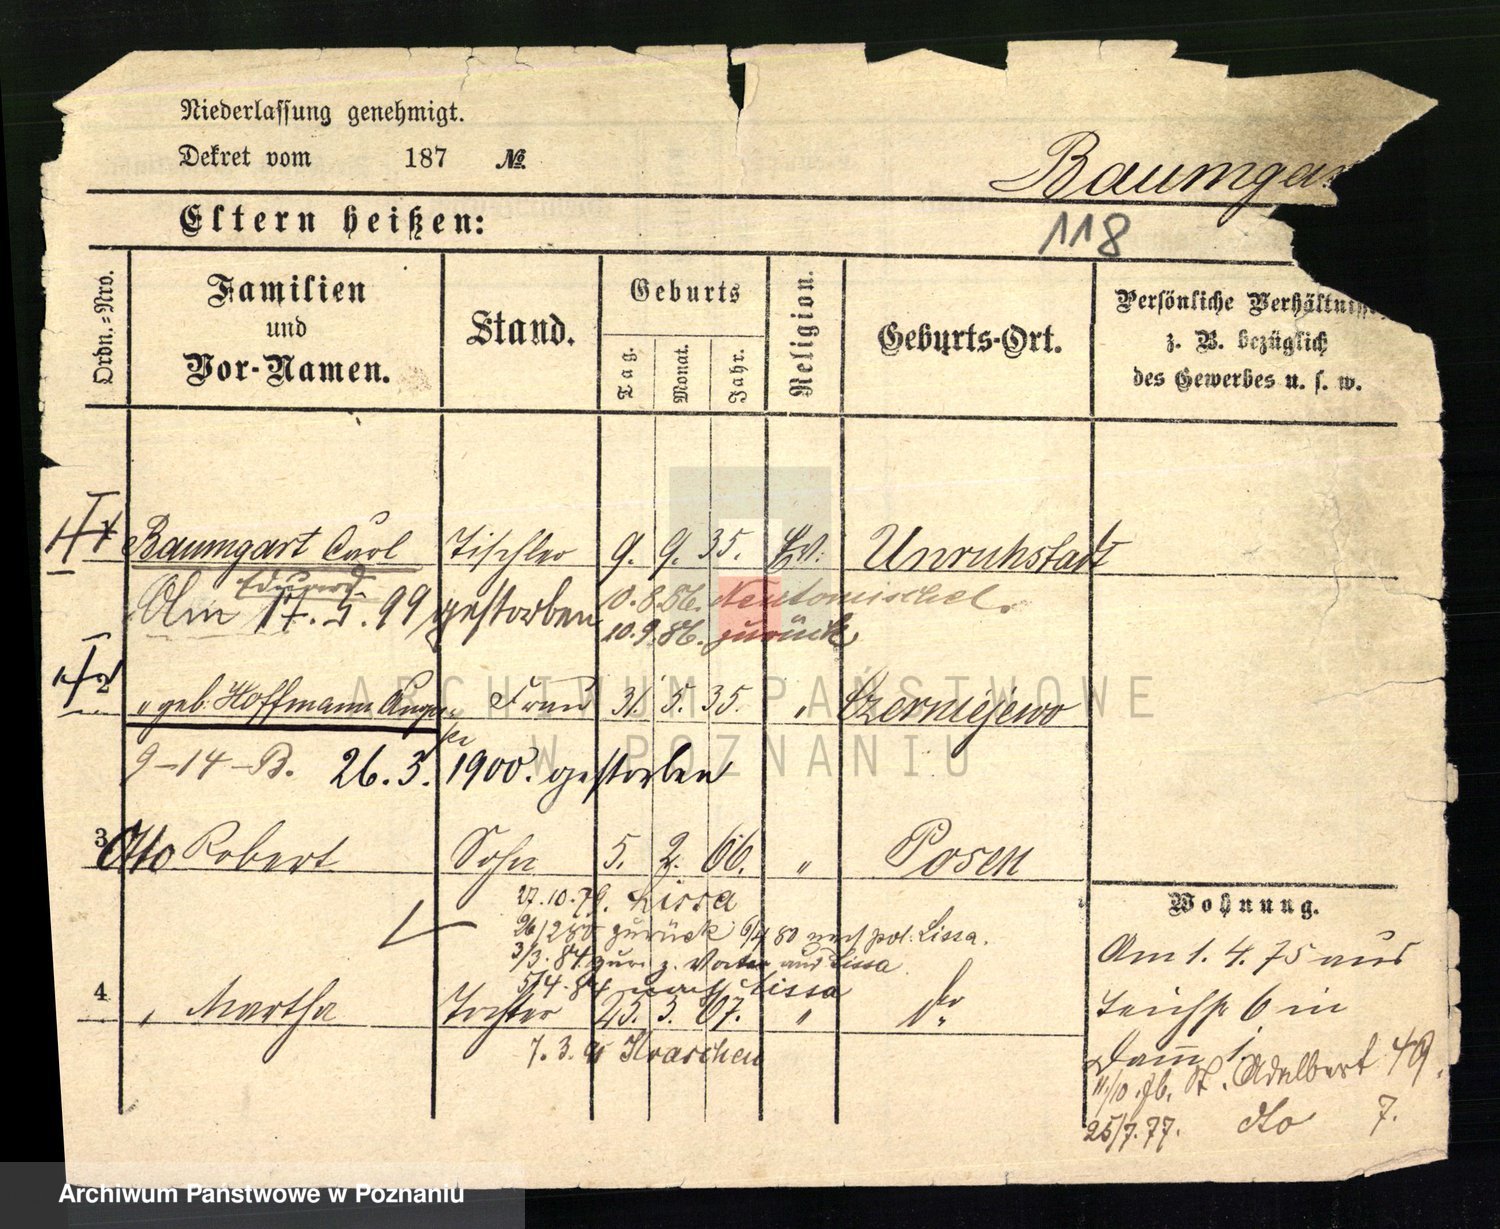 Niederlassung genehmigt.
Dekret vom 187 №
Baumgar
Eltern heißen:
118
Ordn.-Nro.
Familien
und
Vor-Namen.
Stand.
Geburts
Tag.
Monat.
Jahr.
Religion.
Geburts-Ort.
Persönliche Verhältnisse
z. B. bezüglich
des Gewerbes u. s. w.
1 Baumgart Carl Tischler 9. 9. 35. Ev. Unruhstadt
Eduard
Am 17. 5. 99 gestorben
10.8.86. Neutomischel.
10.9.86. zurück
2 " geb. Hoffmann Frau 31. 5. 35. " Czerniejewo
9-14-B. 26.3.1900. gestorben
3 Otto Robert Sohn 5. 2. 66. " Posen
27.10.79. Lissa
26/2 80 zurück 6/4 80 nach pol. Lissa.
3/3. 84 zur. z. Vater aus Lissa
5/4. 84 nach Lissa
4 " Martha Tochter 25. 3. 67. " do
7.3. Kraschen
Wohnung.
Am 1. 4. 75 aus
Teichstr 6 in
Damm 1.
11/10. 76. St. Adalbert 49.
25/7. 77. dto 7.
ARCHIWUM PAŃSTWOWE
W POZNANIU
Archiwum Państwowe w Poznaniu